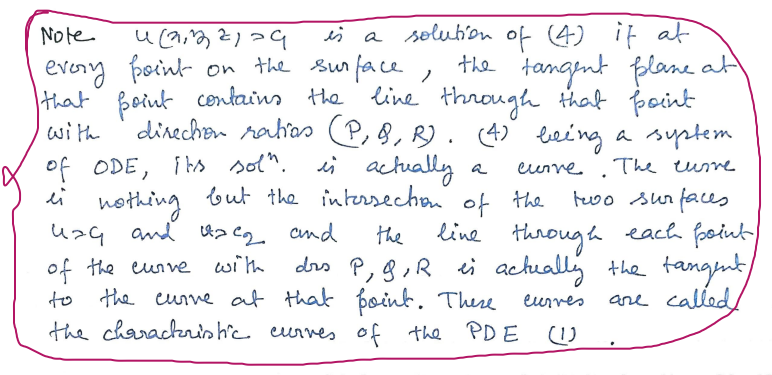 Note u(x, y, z) = c₁ is a solution of (4) if at
every point on the surface, the tangent plane at
that point contains the line through that point
with direction ratios (P, Q, R). (4) being a system
of ODE, its solⁿ. is actually a curve. The curve
is nothing but the intersection of the two surfaces
u=c₁ and v=c₂ and the line through each point
of the curve with drs P, Q, R is actually the tangent
to the curve at that point. These curves are called
the characteristic curves of the PDE (1).